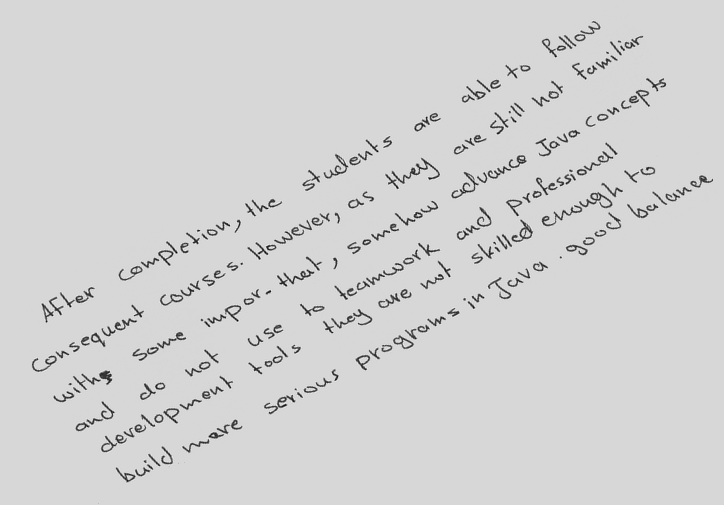 After completion, the students are able to follow
consequent courses. However, as they are still not familiar
with some impor- that, somehow advance Java concepts
and do not use to teamwork and professionall
development tools they are not skilled enough to
build more serious programs in Java. good balance